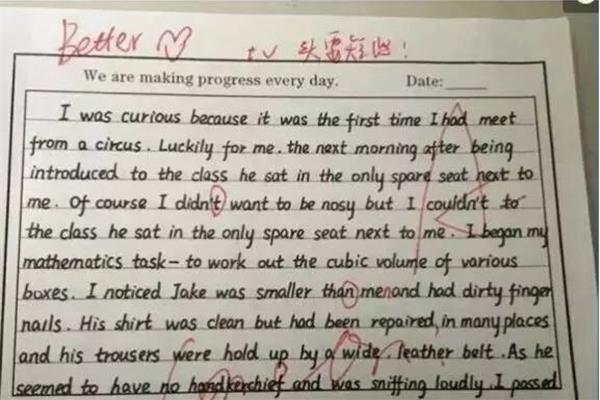 Better
tv 头要短些!
We are making progress every day. Date:
I was curious because it was the first time I had meet
from a circus. Luckily for me. the next morning after being
introduced to the class he sat in the only spare seat next to
me. Of course I didn't want to be nosy but I couldn't to
the class he sat in the only spare seat next to me. I began my
mathematics task- to work out the cubic volume of various
boxes. I noticed Jake was smaller than me and had dirty finger
nails. His shirt was clean but had been repaired, in many places
and his trousers were hold up by a wide. leather belt. As he
seemed to have no handkerchief and was sniffing loudly. I passed